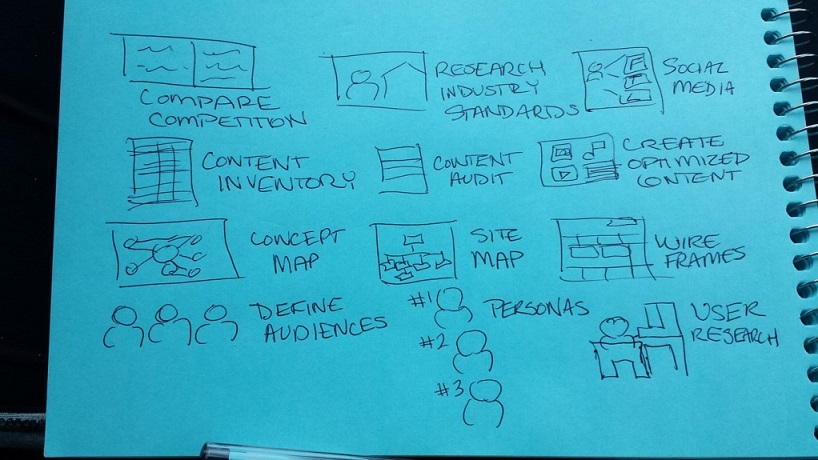 COMPARE
COMPETITION
RESEARCH
INDUSTRY
STANDARDS
SOCIAL
MEDIA
CONTENT
INVENTORY
CONTENT
AUDIT
CREATE
OPTIMIZED
CONTENT
CONCEPT
MAP
SITE
MAP
WIRE
FRAMES
DEFINE
AUDIENCES
#1
PERSONAS
#2
#3
USER
RESEARCH